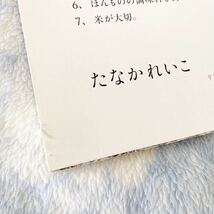 6、ほんものの調味料
7、米が大切。
たなかれいこ